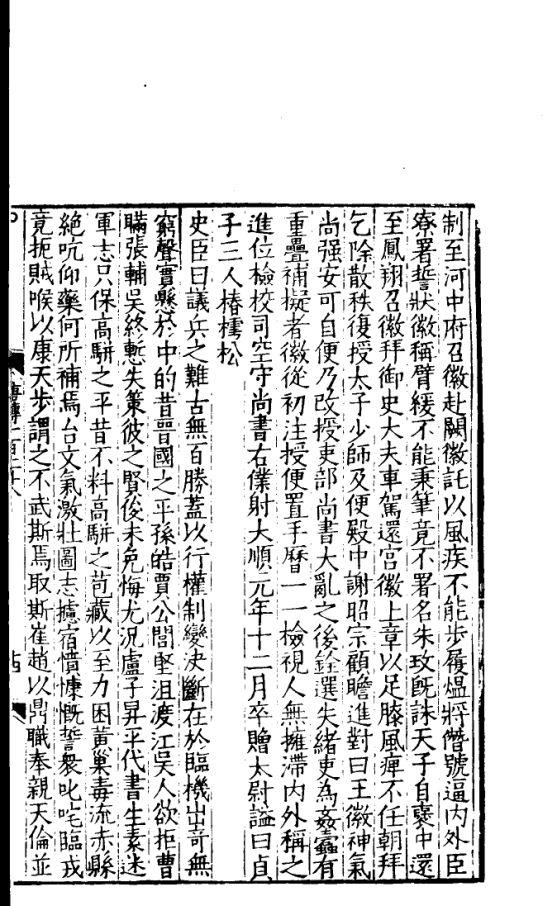 制至河中府召徽赴闕徽託以風疾不能步履熅將僭號逼內外臣
寮署誓狀徽稱臂緩不能秉筆竟不署名朱玫旣誅天子自褒中還
至鳳翔召徽拜御史大夫車駕還宮徽上章以足膝風痺不任朝拜
乞除散秩復授太子少師及便殿中謝昭宗顧瞻進對曰王徽神氣
尚强安可自便乃改授吏部尚書大亂之後銓選失緒吏為姦蠹有
重疊補擬者徽從初注授便置手曆一一檢視人無擁滯內外稱之
進位檢校司空守尚書右僕射大順元年十二月卒贈太尉謚曰貞
子三人椿樗松
史臣曰議兵之難古無百勝蓋以行權制變決斷在於臨機出奇無
窮聲實懸於中的昔晉國之平孫皓賈公閭堅沮渡江吳人欲拒曹
瞞張輔吳終慙失策彼之賢俊未免悔尤況盧子昇平代書生素迷
軍志只保高駢之平昔不料高駢之苞藏以至力困黃巢毒流赤縣
絕吭仰藥何所補焉台文氣激壯圖志攄宿憤慷慨誓衆叱咤臨戎
竟扼賊喉以康天步謂之不武斯焉取斯崔趙以鼎職奉親天倫並